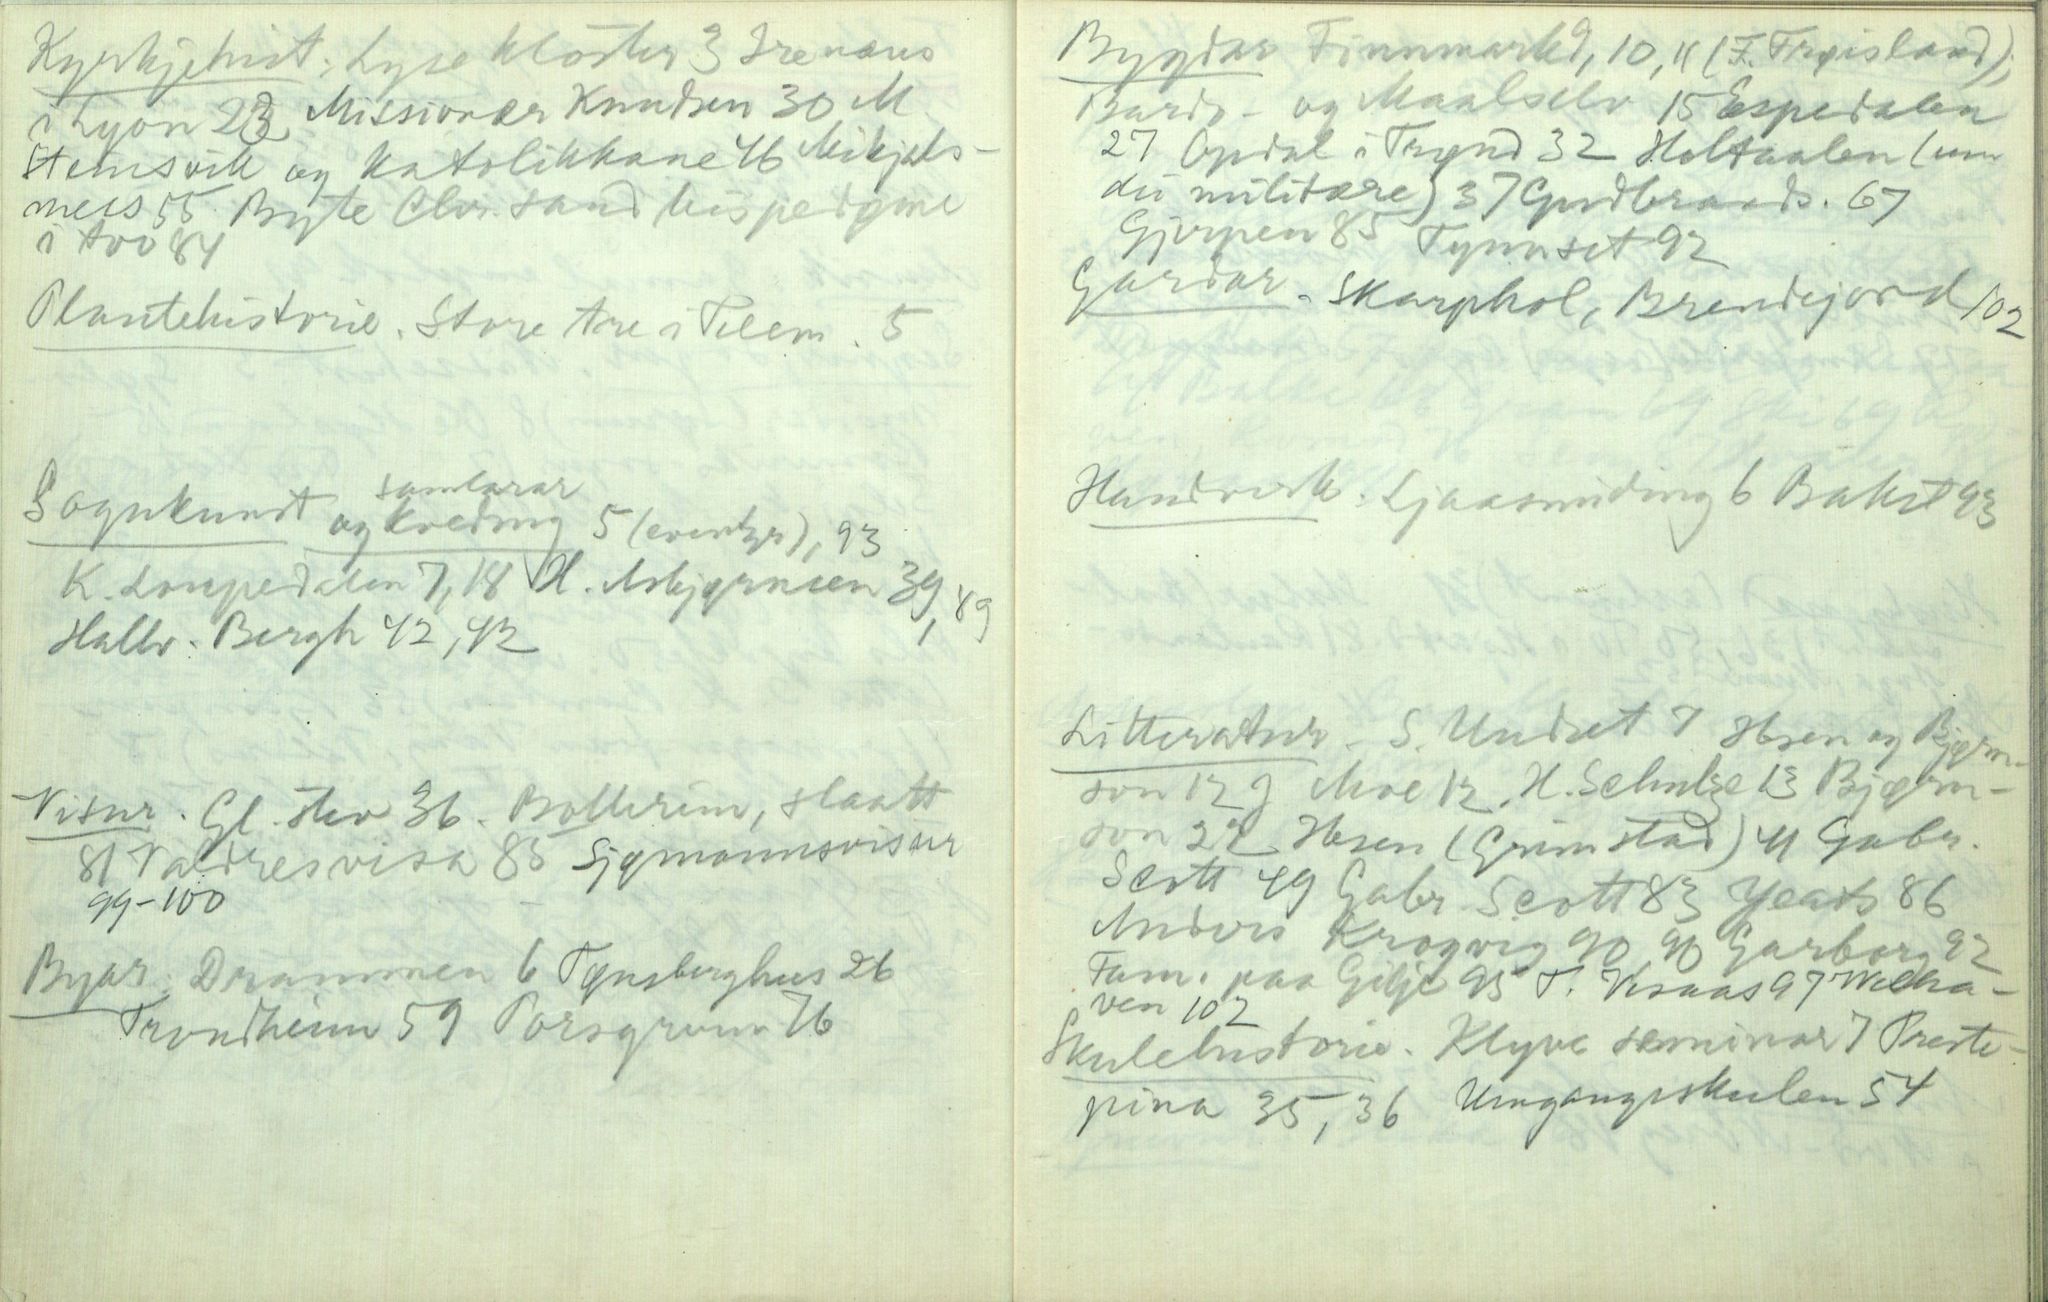 Kyrkjehist. Lyse kloster 3 Irenæus
i Lyon 23 Missionær Knudsen 30 M.
Stensvik og katolikkane 46 Mikjels-
mess 55. Byte Chr.sand bispedøme
i tvo 84
Plantehistorie. Store tre i Telem. 5
samlarar
Sognkunst og kveding 5 (eventyr), 93
K. Loupedalen 7, 18 H. Asbjørnsen 39, 89
Hallv. Bergh 42, 42
Visur. Gl. stev 36. Bollerim, slaatt
81 Valdresvisa 85 Sjømannsvisur
99-100
Byar. Drammen 6 Tønsberghus 26
Trondheim 59 Porsgrunn 76
Bygdar Finnmark 9, 10, 11 (F. Frøisland);
Bardo- og Maalselv 15 Espedalen
27 Opdal i Trønd 32 Holtaalen (um
dei militære) 37 Gudbrands. 67
Gjerpen 85 Tynnset 92
Gardar. Skarphol, Brendejord 102
Handverk. Ljaasmiding 6 Bakst 93
Litteratur. S. Undset 7 Ibsen og Bjørn-
son 12 J Moe 12. H. Schulze 13 Bjørn-
son 22 Ibsen (Grimstad) 41 Gabr.
Scott 49 Gabr. Scott 83 Yeats 86
Anders Krogvig 90, 90 Garborg 92
Fam. paa Gilje 95 T. Vesaas 97 Welha-
ven 102
Skulehistorie. Klyve seminar 7 Preste-
pina 35, 36 Umgangsskulen 54